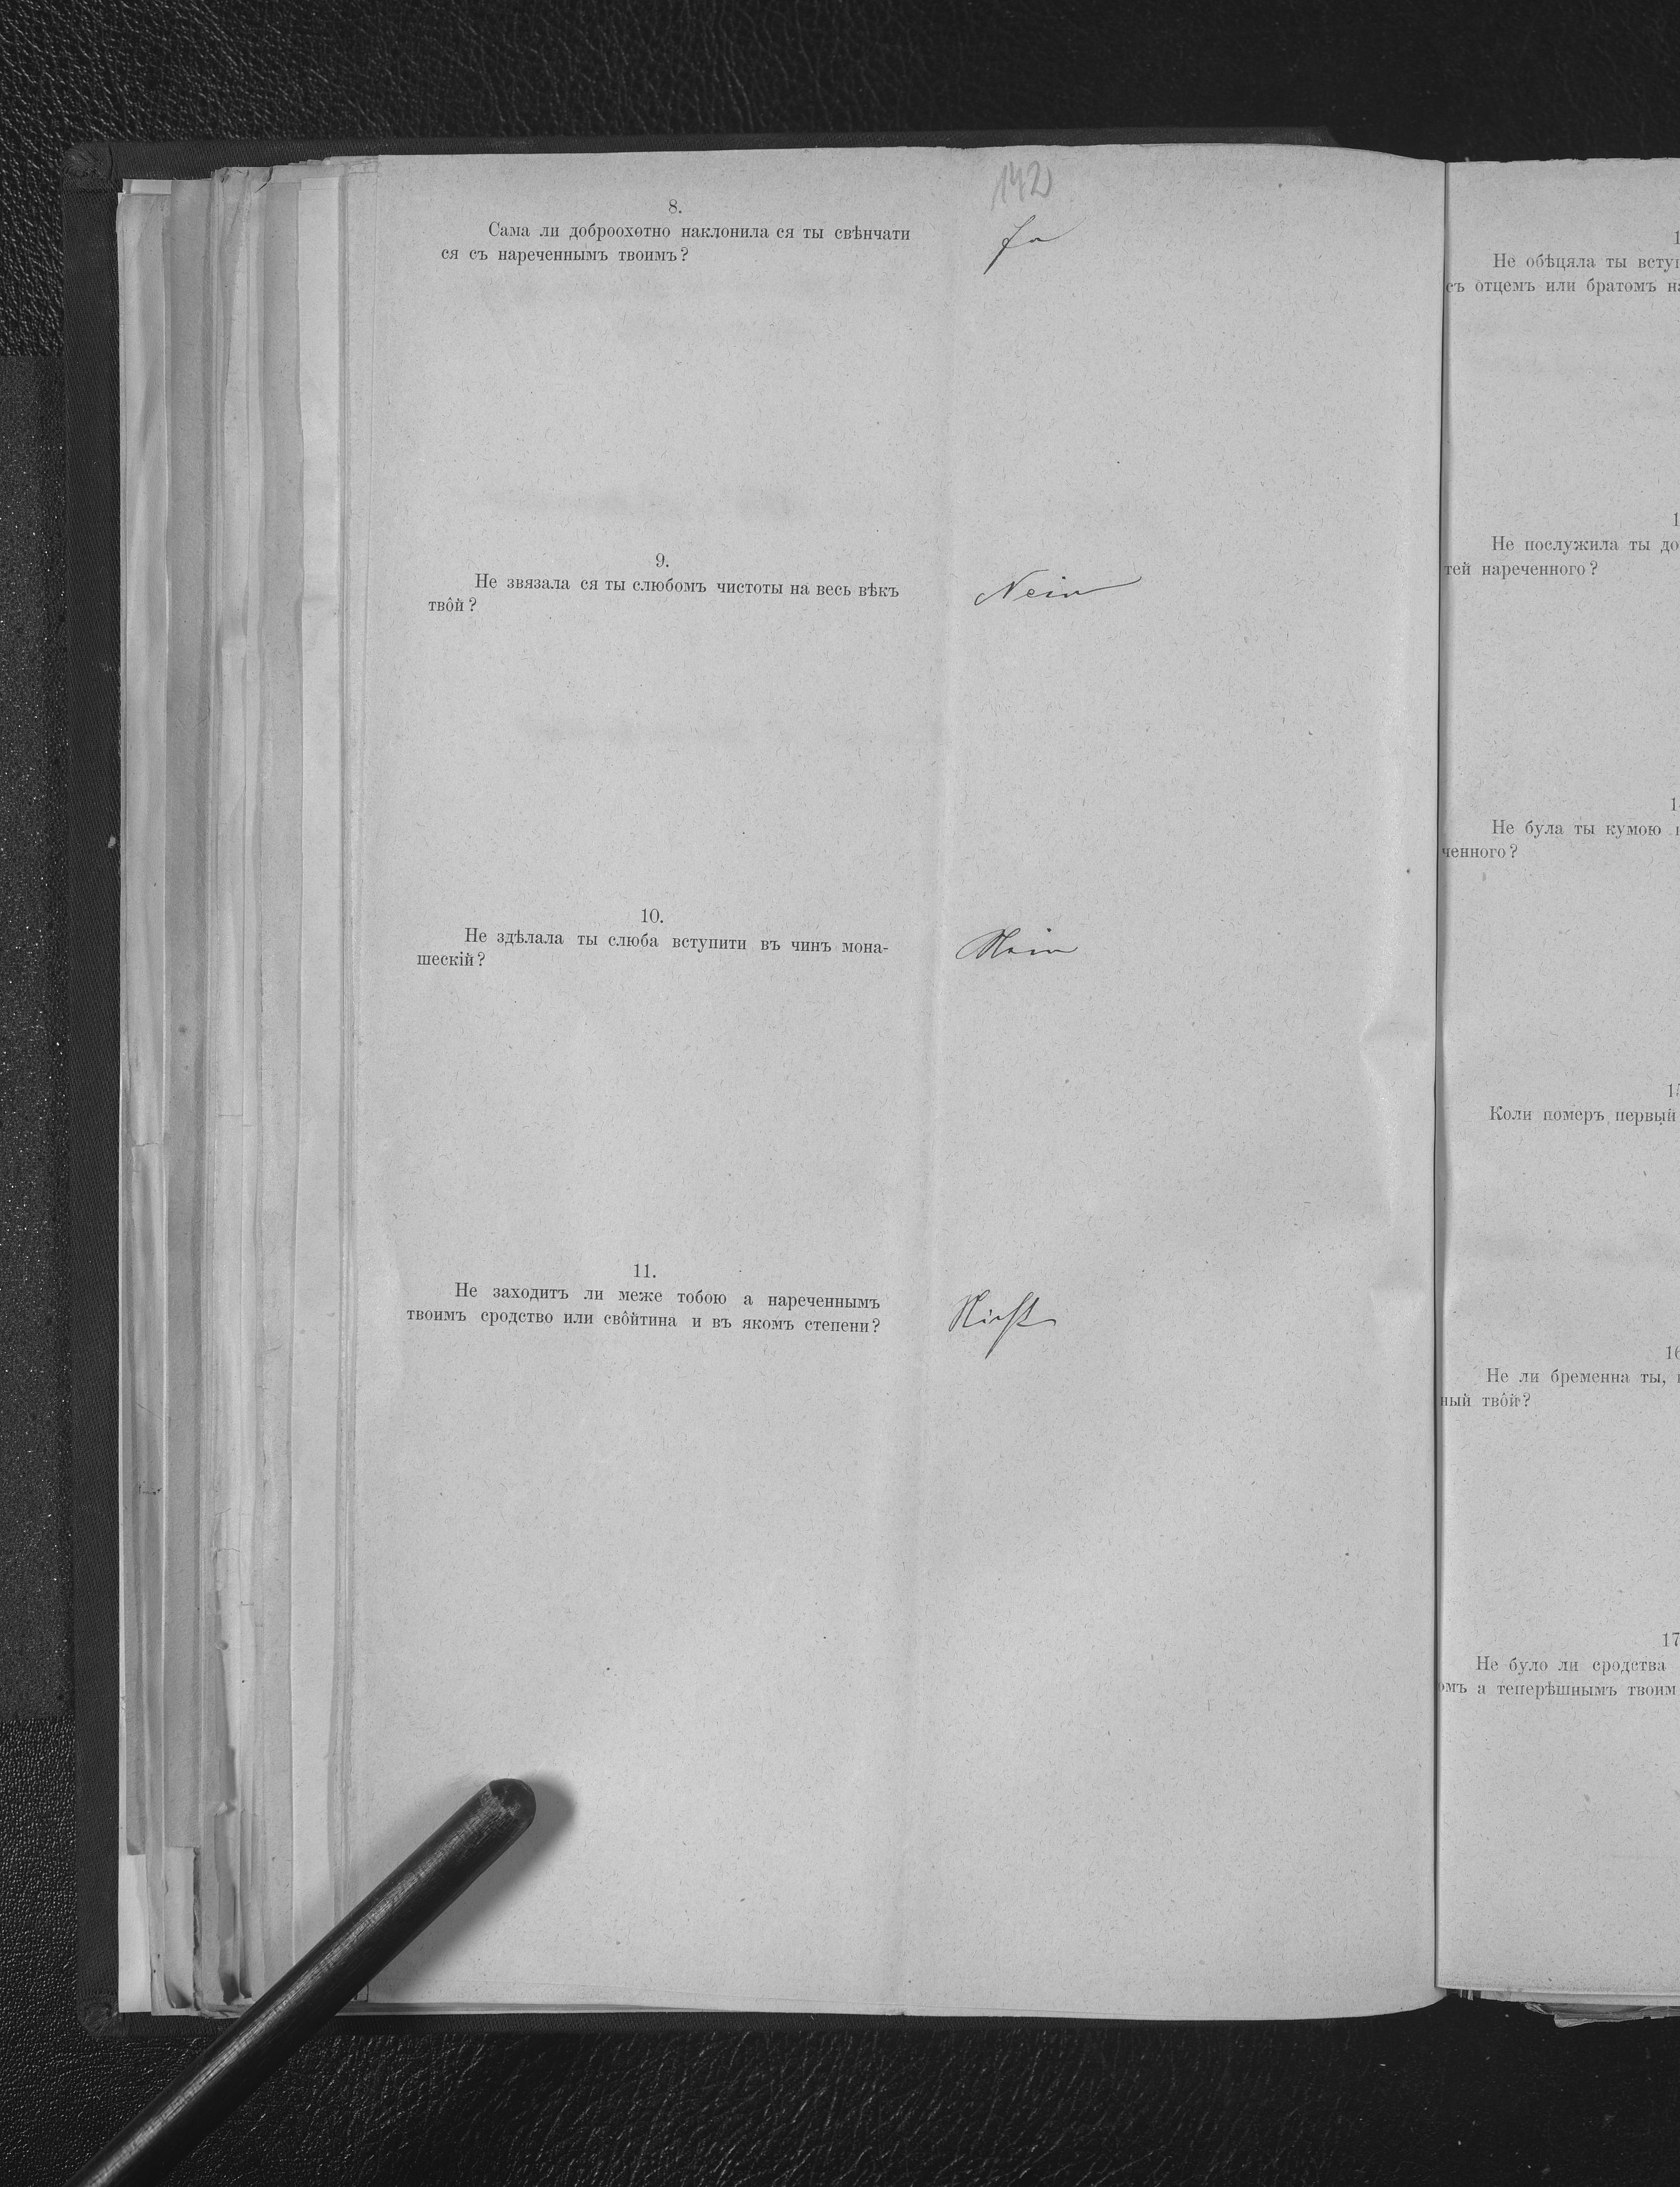 142
8.
Сама ли доброохотно наклонила ся ты свѣнчати
ся съ нареченнымъ твоимъ?
Ja
9.
Не звязала ся ты слюбомъ чистоты на весь вѣкъ
твôй?
Nein
10.
Не здѣлала ты слюба вступити въ чинъ мона-
шескій?
Nein
11.
Не заходитъ ли меже тобою а нареченнымъ
твоимъ сродство или свôйтина и въ якомъ степени?
Nicht
Не обѣцяла ты
съ отцемъ или братомъ
Не послужила ты
тей нареченного?
Не була ты кумою
ченного?
Коли померъ первый
16
Не ли бременна ты,
ный твôй?
17
Не було ли сродства
омъ а теперѣшнымъ твоим